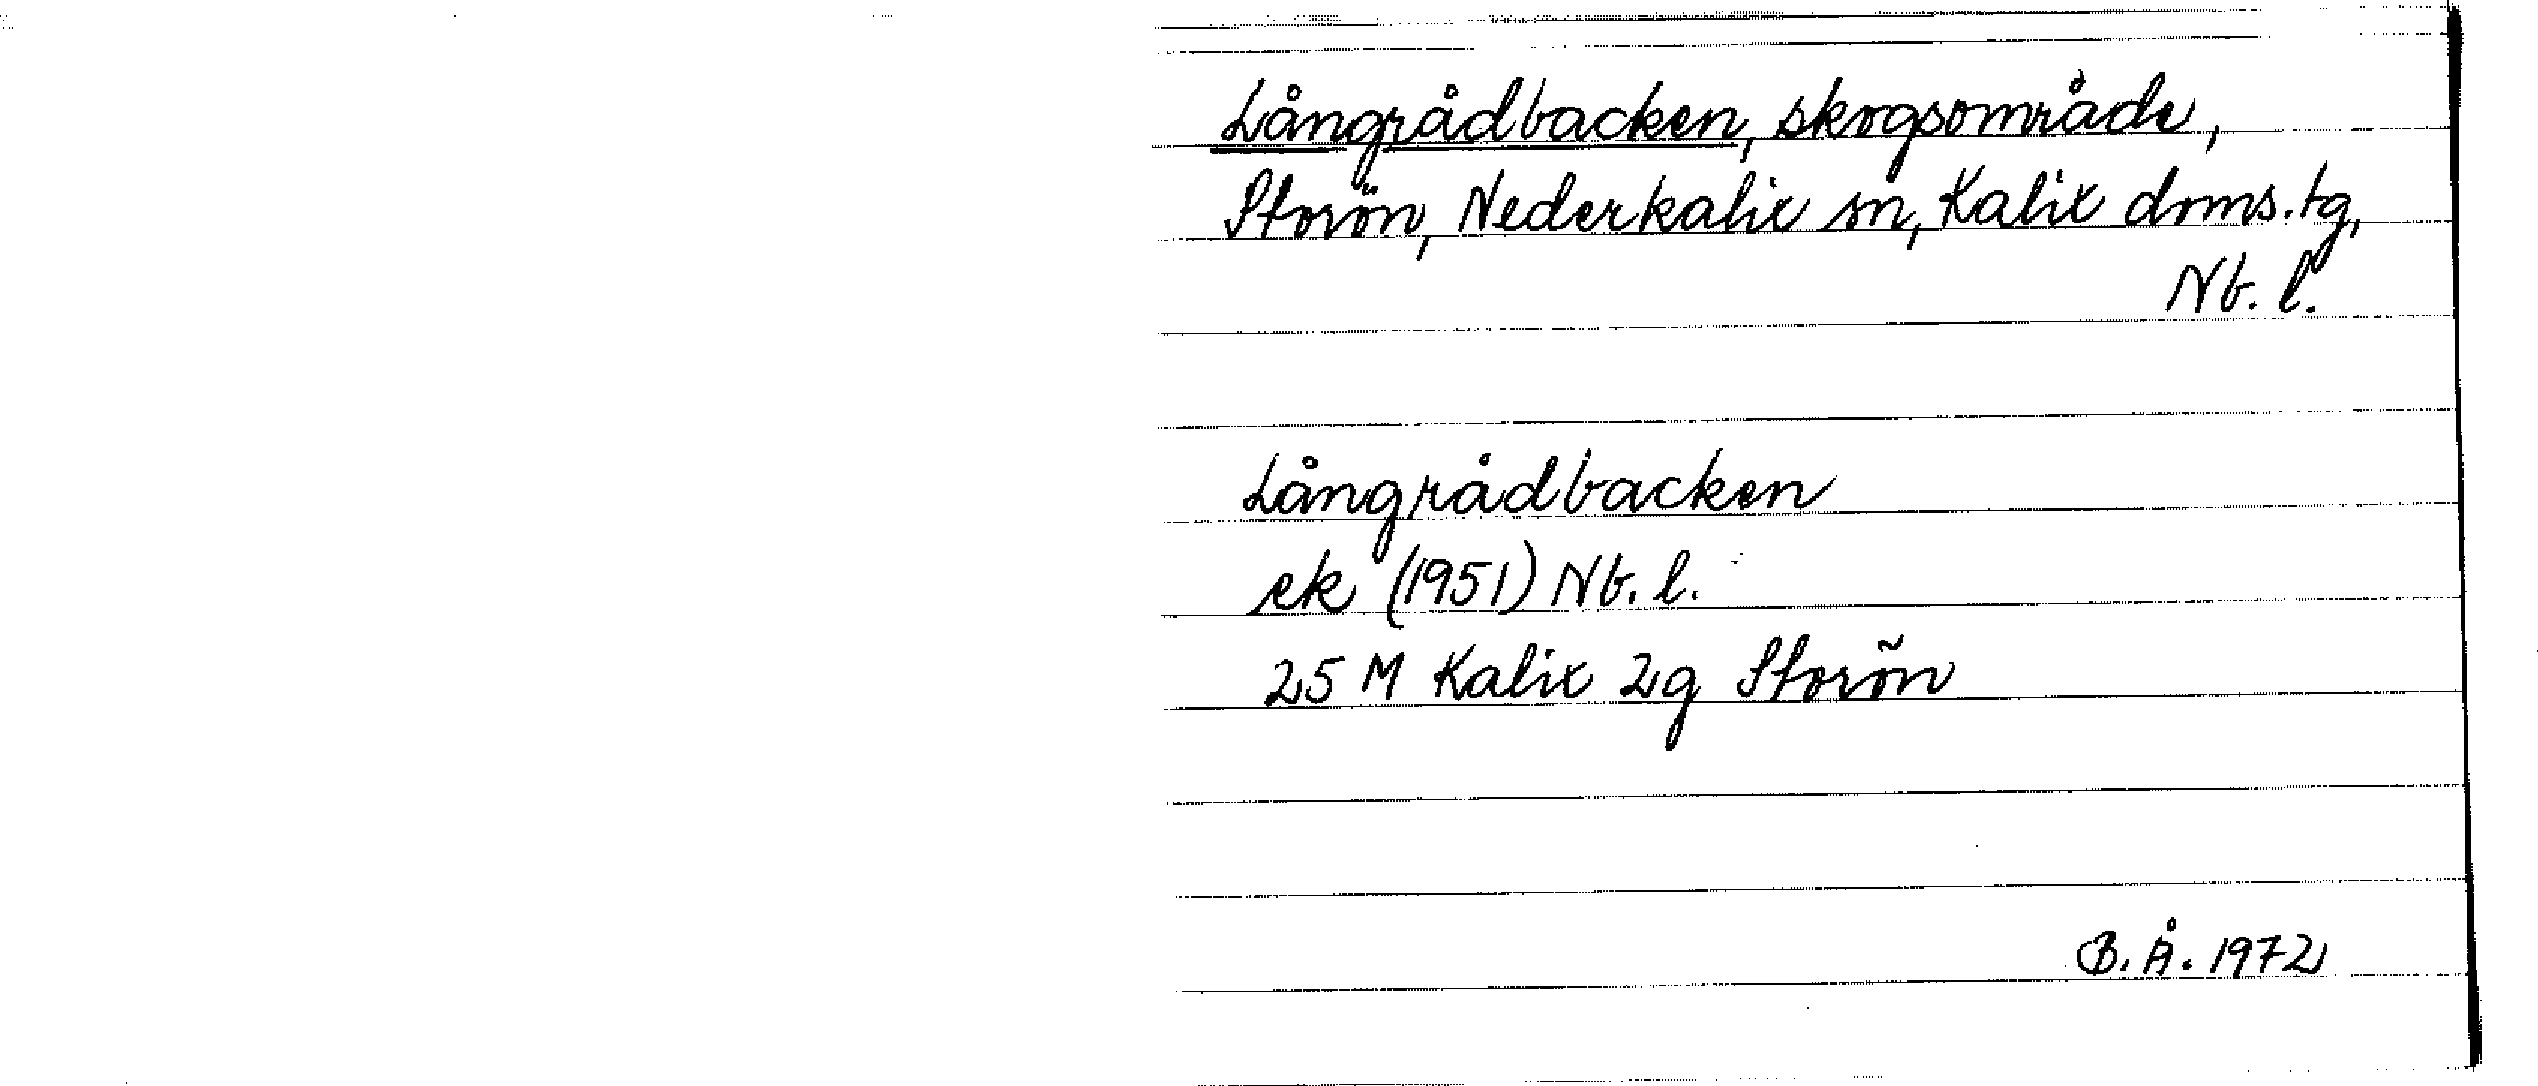 Långrådbacken, skogsområde,
Storön, Nederkalix sn, Kalix doms.tg,
Nb. l.
Långrådbacken
ek (1951) Nb. l.
25 M Kalix 2g Storön
B. Å. 1972